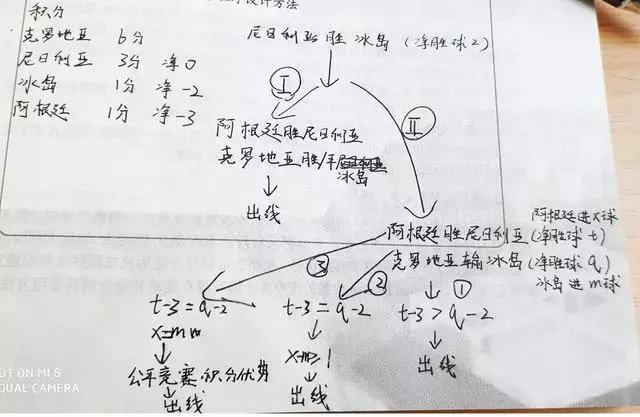 积分
克罗地亚 6分
尼日利亚 3分 净0
冰岛 1分 净-2
阿根廷 1分 净-3
尼日利亚胜冰岛(净胜球2)
Ⅰ
Ⅱ
阿根廷胜尼日利亚
克罗地亚胜/平
冰岛
出线
阿根廷进x球
阿根廷胜尼日利亚(净胜球t)
克罗地亚输冰岛(净胜球q)
冰岛进m球
③
②
①
t-3=q-2
t-3=q-2
t-3>q-2
x=m
x-m≥1
出线
公平竞赛积分优势
出线
出线
SHOT ON MI 8
DUAL CAMERA